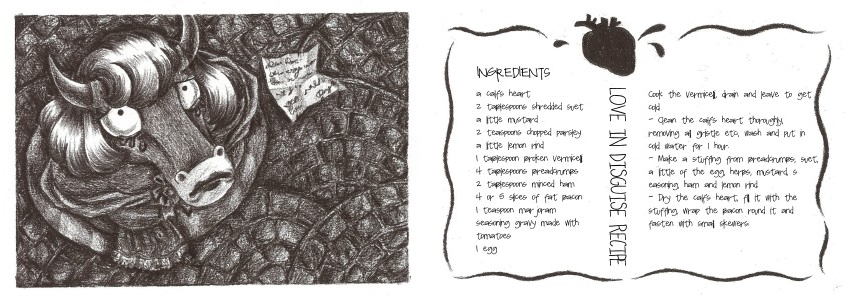 INGREDIENTS
a calf's heart
2 taplespoons shredded suet
a little mustard
2 teaspoons chopped parsley
a little lemon rind
1 taplespoon broken vermicelli
4 taplespoons breadcrumps
2 taplespoons minced ham
4 or 5 slices of fat bacon
1 teaspoon marjoram
seasoning gravy made with
tomatoes
1 egg
LOVE IN DISGUISE RECIPE
Cook the vermicelli, drain and leave to get
cold
- Clean the calf's heart thoroughly,
removing all gristle etc, wash and put in
cold water for 1 hour
- Make a stuffing from breadcrumps, suet,
a little of the egg, herps, mustard s
easoning, ham and lemon rind
- Dry the calf's heart, fill it with the
stuffing, wrap the bacon round it and
fasten with small skewers